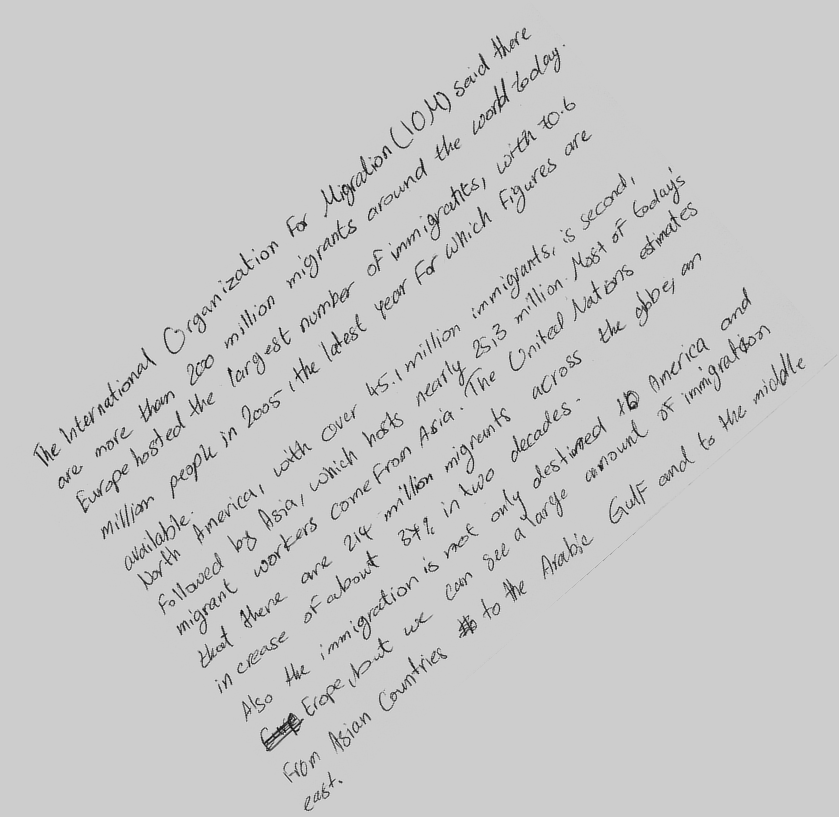 The International Organization For Migration (IOM) said there
are more than 200 million migrants around the world today.
Europe hosted the largest number of immigrants, with 70.6
million people in 2005, the latest year For which Figures are
available.
North America, with over 45.1 million immigrants, is second,
Followed by Asia, which hosts nearly 25,3 million. Most of today's
migrant workers come From Asia. The United Nations estimates
that there are 214 million migrants across the globe, an
increase of about 37% in two decades.
Also the immigration is not only destined to America and
Erope, but we can see a large amount of immigration
From Asian Countries to the Arabic Gulf and to the middle
east.